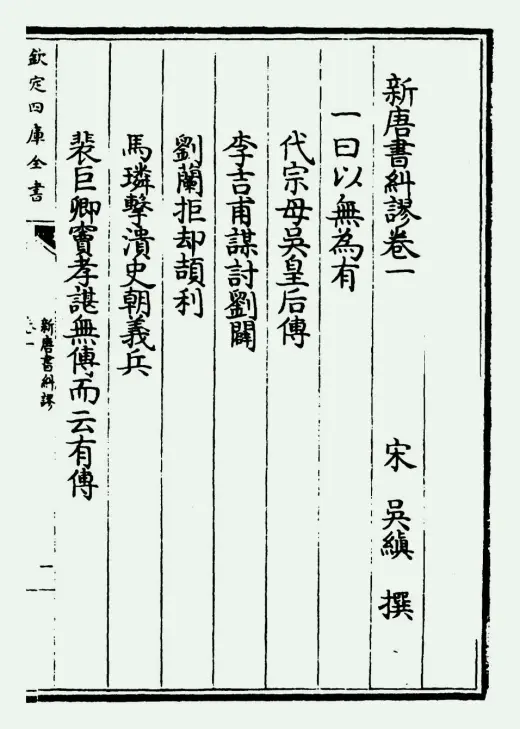 新唐書糾謬卷一
宋 吳縝 撰
一曰以無為有
代宗母吳皇后傳
李吉甫謀討劉闢
劉蘭拒却頡利
馬璘擊潰史朝義兵
裴巨卿竇孝諶無傳而云有傳
欽定四庫全書
新唐書糾謬
卷一
一